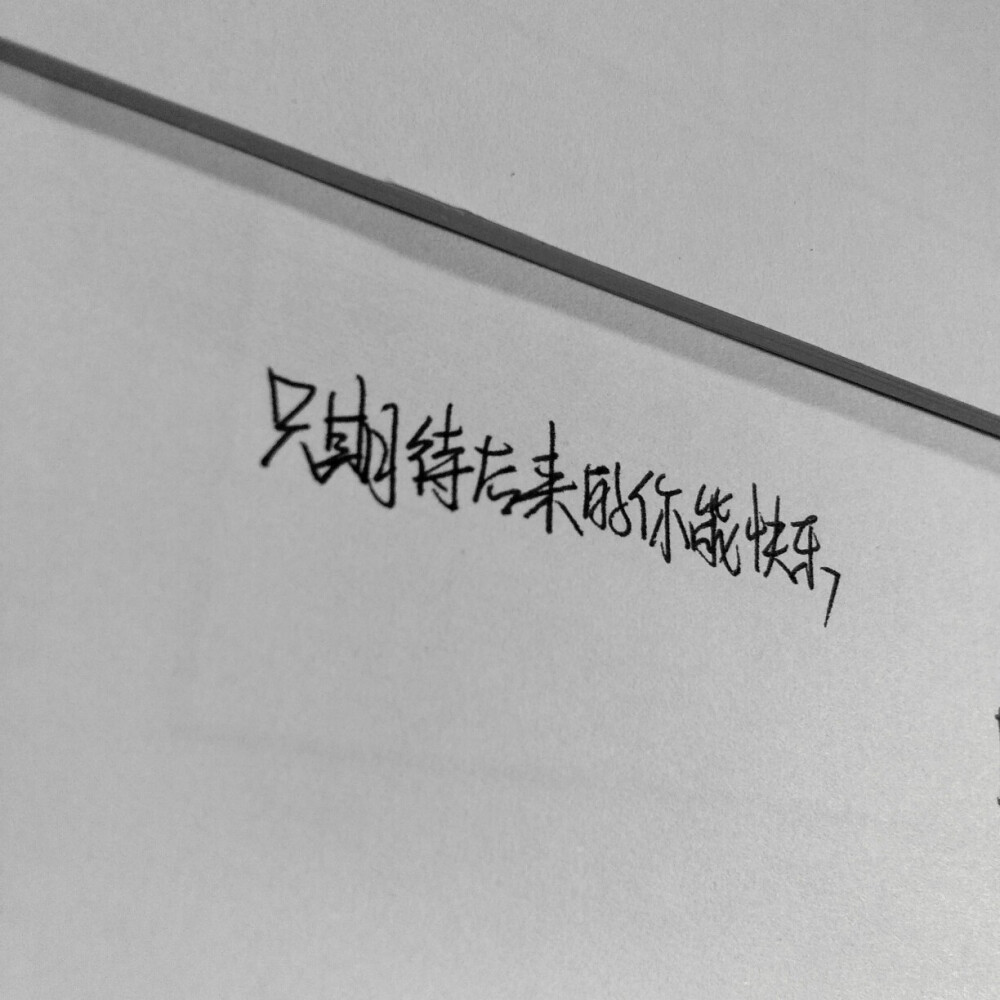 只期待后来的你能快乐,